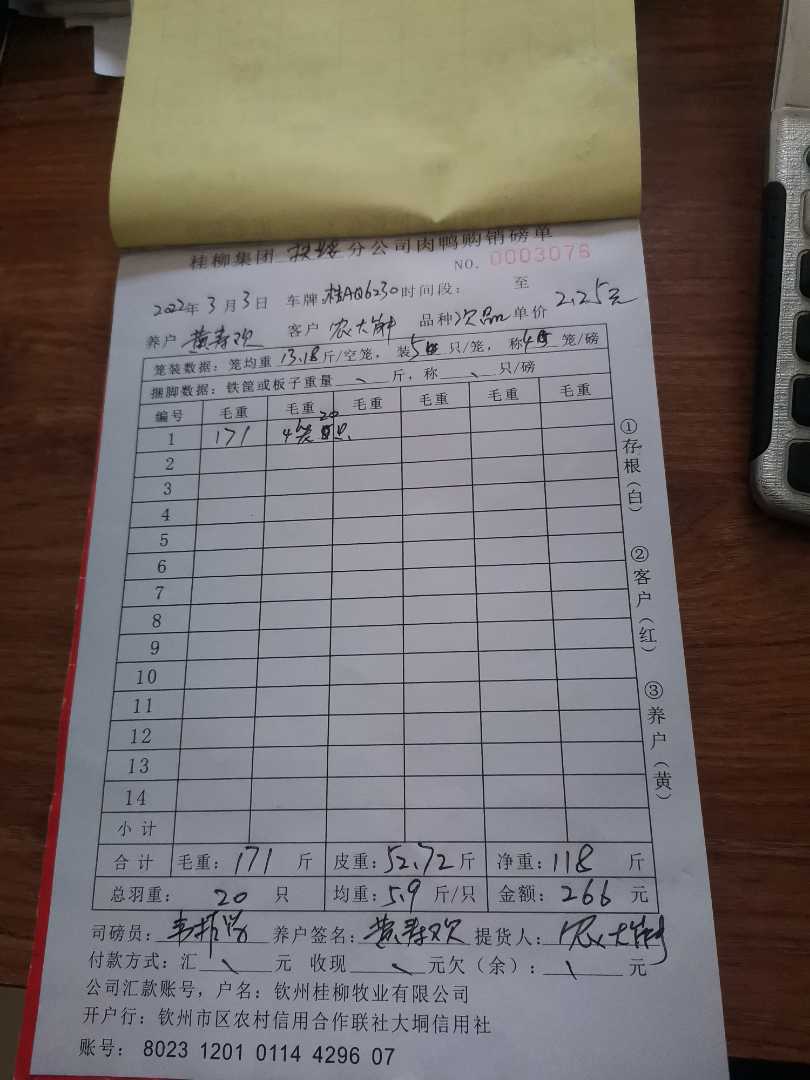 桂柳集团 分公司肉鸭购销磅单
NO. 0003076
2022年3月3日 车牌:桂AQ6230时间段: 至
养户 黄寿欢 客户 农大 品种次品单价 2.25元
笼装数据:笼均重 13.18斤/空笼,装5只/笼,称4笼/磅
捆脚数据:铁筐或板子重量 斤,称 只/磅
编号 毛重 毛重 毛重 毛重 毛重 毛重
1 171 4笼 20只
2
3
4
5
6
7
8
9
10
11
12
13
14
小计
合计 毛重:171 斤 皮重:52.72斤 净重:118 斤
总羽重: 20 只 均重:5.9斤/只 金额:266 元
司磅员: 养户签名:黄寿欢 提货人:农大
付款方式:汇 元 收现 元欠(余): 元
公司汇款账号,户名:钦州桂柳牧业有限公司
开户行:钦州市区农村信用合作联社大垌信用社
账号: 8023 1201 0114 4296 07
①存根(白) ②客户(红) ③养户(黄)